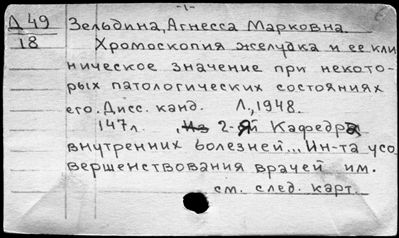 -1-
Д 49 Зельдина, Агнесса Марковна.
18 Хромоскопия желудка и ее кли
ническое значение при некото-
рых патологических состояниях
его. Дисс. канд. Л., 1948.
147л. , Из 2-й Кафедра
внутренних болезней... Ин-та усо
вершенствования врачей им.
см. след. карт.